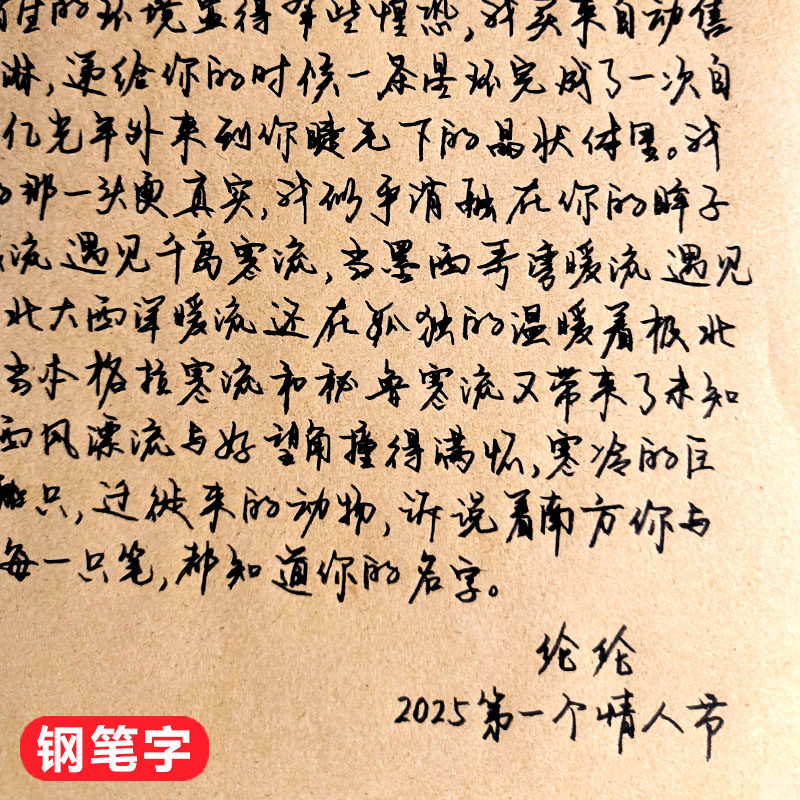 生的环境显得有些惶恐,我买来自动售
淋,递给你的时候一条星环完成了一次自
亿光年外来到你睫毛下的晶状体里。我
那一头更真实,我似乎消融在你的眸子
流遇见千岛寒流,当墨西哥湾暖流遇见
北大西洋暖流还在孤独的温暖着极北
当本格拉寒流和秘鲁寒流又带来了未知
西风漂流与好望角撞得满怀,寒冷的巨
船只,迁徙来的动物,诉说着南方你与
每一只笔,都知道你的名字。
纶纶
2025第一个情人节
钢笔字